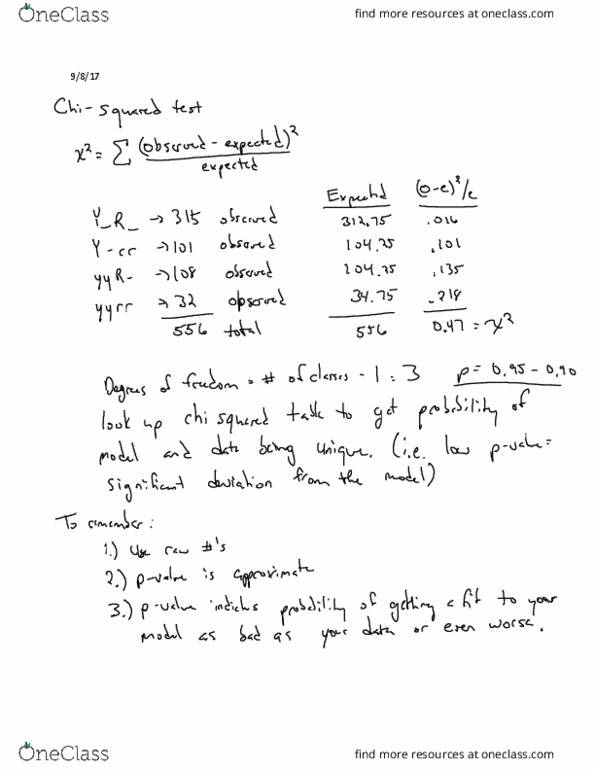 OneClass
find more resources at oneclass.com
9/8/17
Chi-squared test
χ² = Σ (observed - expected)² / expected
Expected (o-e)²/e
Y_R_ → 315 observed 312.75 .016
Y-rr → 101 observed 104.25 .101
yyR- → 108 observed 104.25 .135
yyrr → 32 observed 34.75 .218
556 total 556 0.47 = χ²
Degrees of freedom = # of classes - 1 = 3 p = 0.95 - 0.90
look up chi squared table to get probability of
model and data being unique. (i.e. low p-value =
significant deviation from the model)
To remember:
1.) Use raw #'s
2.) p-value is approximate
3.) p-value indicates probability of getting a fit to your
model as bad as your data or even worse.
OneClass
find more resources at oneclass.com